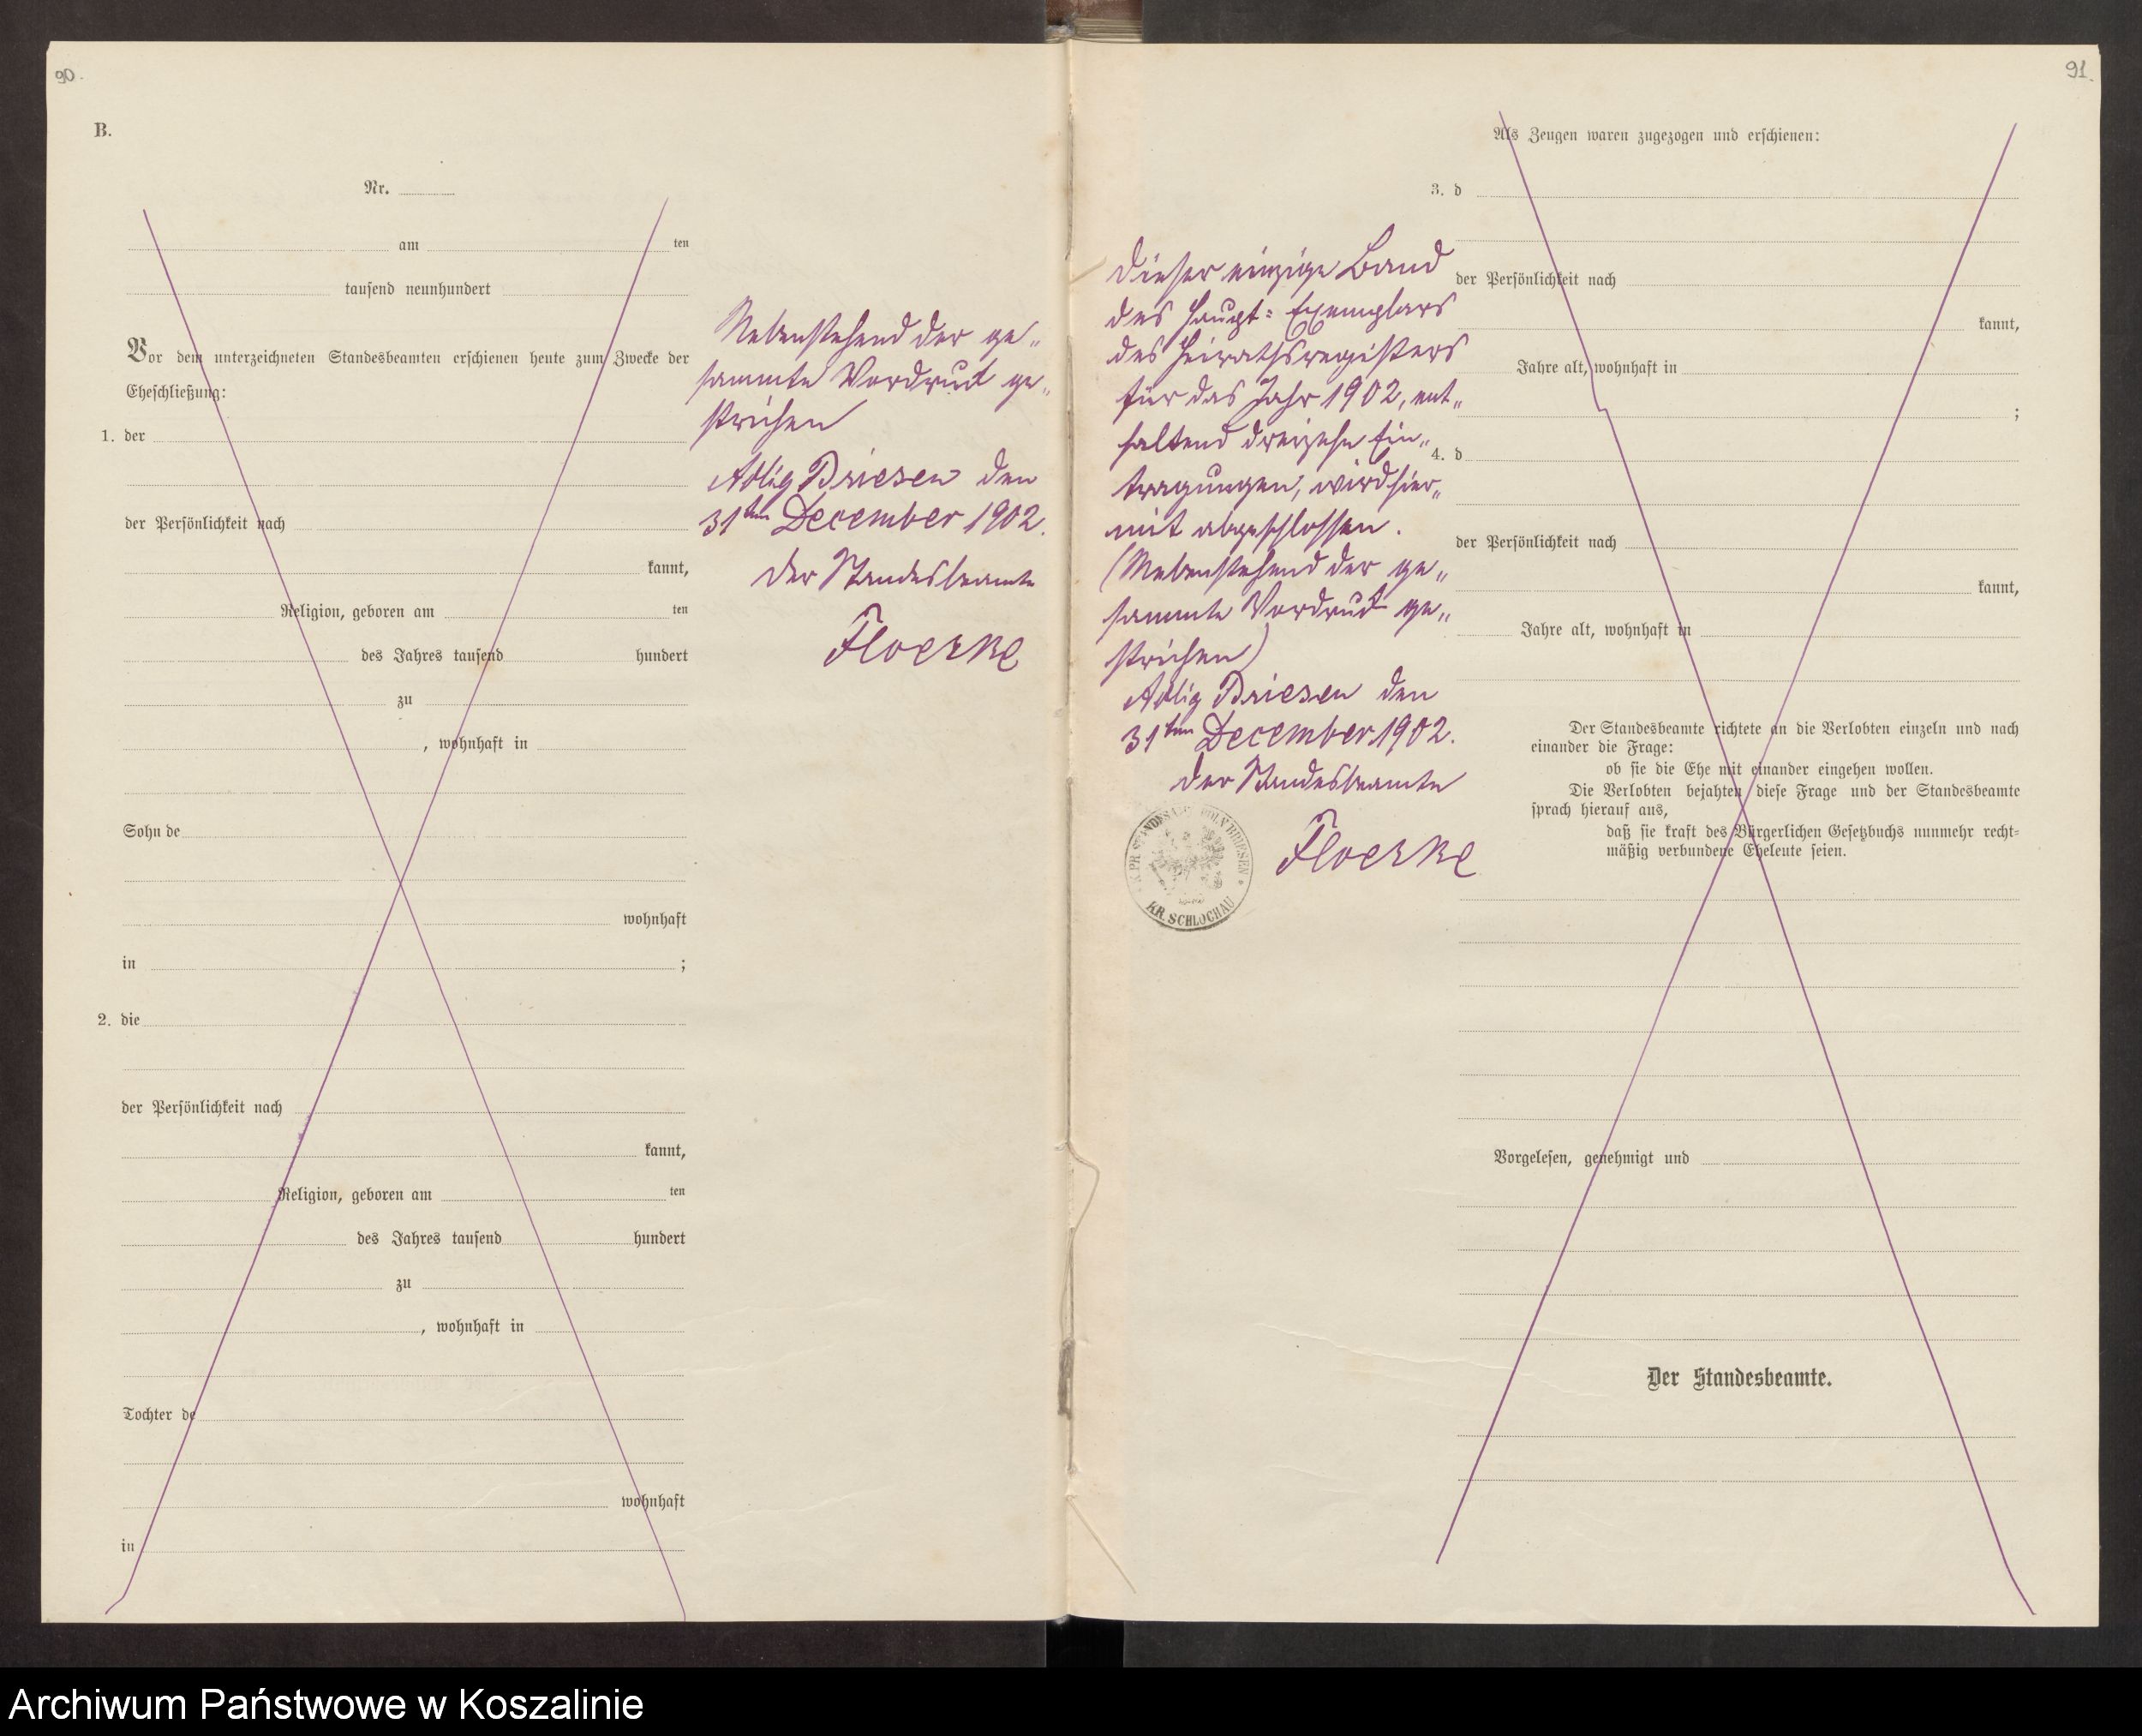 90.
B.
Nr.
am ten
tausend neunhundert
Vor dem unterzeichneten Standesbeamten erschienen heute zum Zwecke der
Eheschließung:
1. der
der Persönlichkeit nach
kannt,
Religion, geboren am ten
des Jahres tausend hundert
zu
, wohnhaft in
Sohn de
wohnhaft
in ;
2. die
der Persönlichkeit nach
kannt,
Religion, geboren am ten
des Jahres tausend hundert
zu
, wohnhaft in
Tochter de
wohnhaft
in
Nebenstehend der ge„
sammte Vordruck ge„
strichen
Adlig Briesen den
31ten December 1902.
Der Standesbeamte
Floerke
91.
Dieser einzige Band
des Haupt= Exemplars
des Heirathsregisters
für das Jahr 1902, ent„
haltend dreizehn Ein„
tragungen, wird hier„
mit abgeschlossen.
(Nebenstehend der ge„
sammte Vordruck ge„
strichen)
Adlig Briesen den
31ten December 1902.
Der Standesbeamte
Floerke
KR. SCHLOCHAU
Als Zeugen waren zugezogen und erschienen:
3. d
der Persönlichkeit nach
kannt,
Jahre alt, wohnhaft in
;
4. d
der Persönlichkeit nach
kannt,
Jahre alt, wohnhaft in
Der Standesbeamte richtete an die Verlobten einzeln und nach
einander die Frage:
ob sie die Ehe mit einander eingehen wollen.
Die Verlobten bejahten diese Frage und der Standesbeamte
sprach hierauf aus,
daß sie kraft des Bürgerlichen Gesetzbuchs nunmehr recht=
mäßig verbundene Eheleute seien.
Vorgelesen, genehmigt und
Der Standesbeamte.
Archiwum Państwowe w Koszalinie